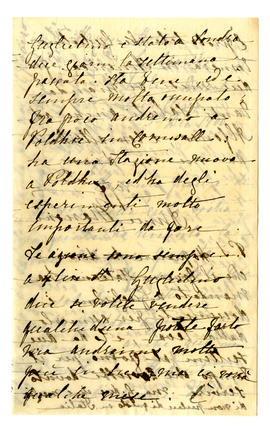 Guglielmo è stato a Londra
due giorni la settimana
passata. Sta bene ed è
sempre molto occupato
Fra poco andremo a
Poldhu in Cornwall
ha una stazione nuova
a Poldhu ed ha degli
esperimenti molto
importanti da fare
Le azioni sono sempre
Guglielmo
dice se volete vendere
qualcheduna potete farlo
ma andranno molto
più in
qualche mese.